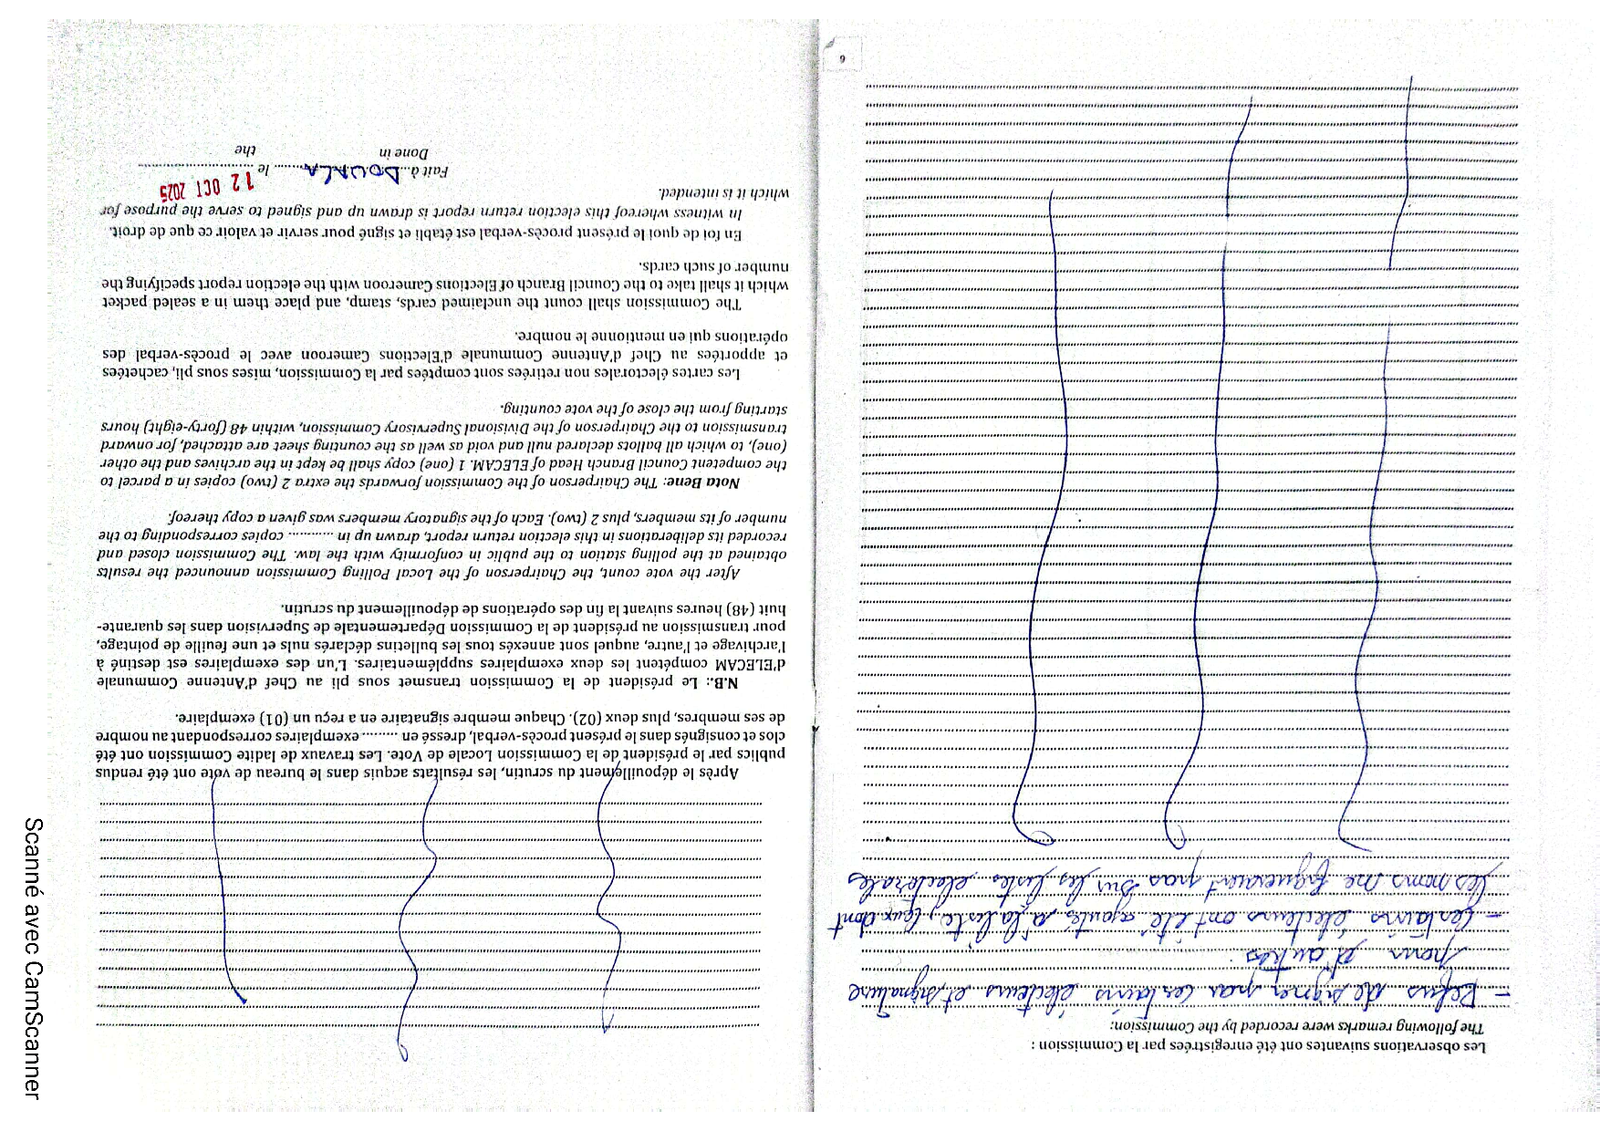 Les observations suivantes ont été enregistrées par la Commission :
The following remarks were recorded by the Commission:
- Refus de signer par certains électeurs et signature
pour d'autres.
- Certains électeurs ont été ajoutés à la liste, ceux dont
les noms ne figuraient pas sur les listes électorale
6
Après le dépouillement du scrutin, les résultats acquis dans le bureau de vote ont été rendus
publics par le président de la Commission Locale de Vote. Les travaux de ladite Commission ont été
clos et consignés dans le présent procès-verbal, dressé en .......... exemplaires correspondant au nombre
de ses membres, plus deux (02). Chaque membre signataire en a reçu un (01) exemplaire.
N.B.: Le président de la Commission transmet sous pli au Chef d'Antenne Communale
d'ELECAM compétent les deux exemplaires supplémentaires. L'un des exemplaires est destiné à
l'archivage et l'autre, auquel sont annexés tous les bulletins déclarés nuls et une feuille de pointage,
pour transmission au président de la Commission Départementale de Supervision dans les quarante-
huit (48) heures suivant la fin des opérations de dépouillement du scrutin.
After the vote count, the Chairperson of the Local Polling Commission announced the results
obtained at the polling station to the public in conformity with the law. The Commission closed and
recorded its deliberations in this election return report, drawn up in ............ copies corresponding to the
number of its members, plus 2 (two). Each of the signatory members was given a copy thereof.
Nota Bene: The Chairperson of the Commission forwards the extra 2 (two) copies in a parcel to
the competent Council Branch Head of ELECAM. 1 (one) copy shall be kept in the archives and the other
(one), to which all ballots declared null and void as well as the counting sheet are attached, for onward
transmission to the Chairperson of the Divisional Supervisory Commission, within 48 (forty-eight) hours
starting from the close of the vote counting.
Les cartes électorales non retirées sont comptées par la Commission, mises sous pli, cachetées
et apportées au Chef d'Antenne Communale d'Elections Cameroon avec le procès-verbal des
opérations qui en mentionne le nombre.
The Commission shall count the unclaimed cards, stamp, and place them in a sealed packet
which it shall take to the Council Branch of Elections Cameroon with the election report specifying the
number of such cards.
En foi de quoi le présent procès-verbal est établi et signé pour servir et valoir ce que de droit.
In witness whereof this election return report is drawn up and signed to serve the purpose for
which it is intended.
Fait à DOUALA le 12 OCT 2025
Done in the
Scanné avec CamScanner